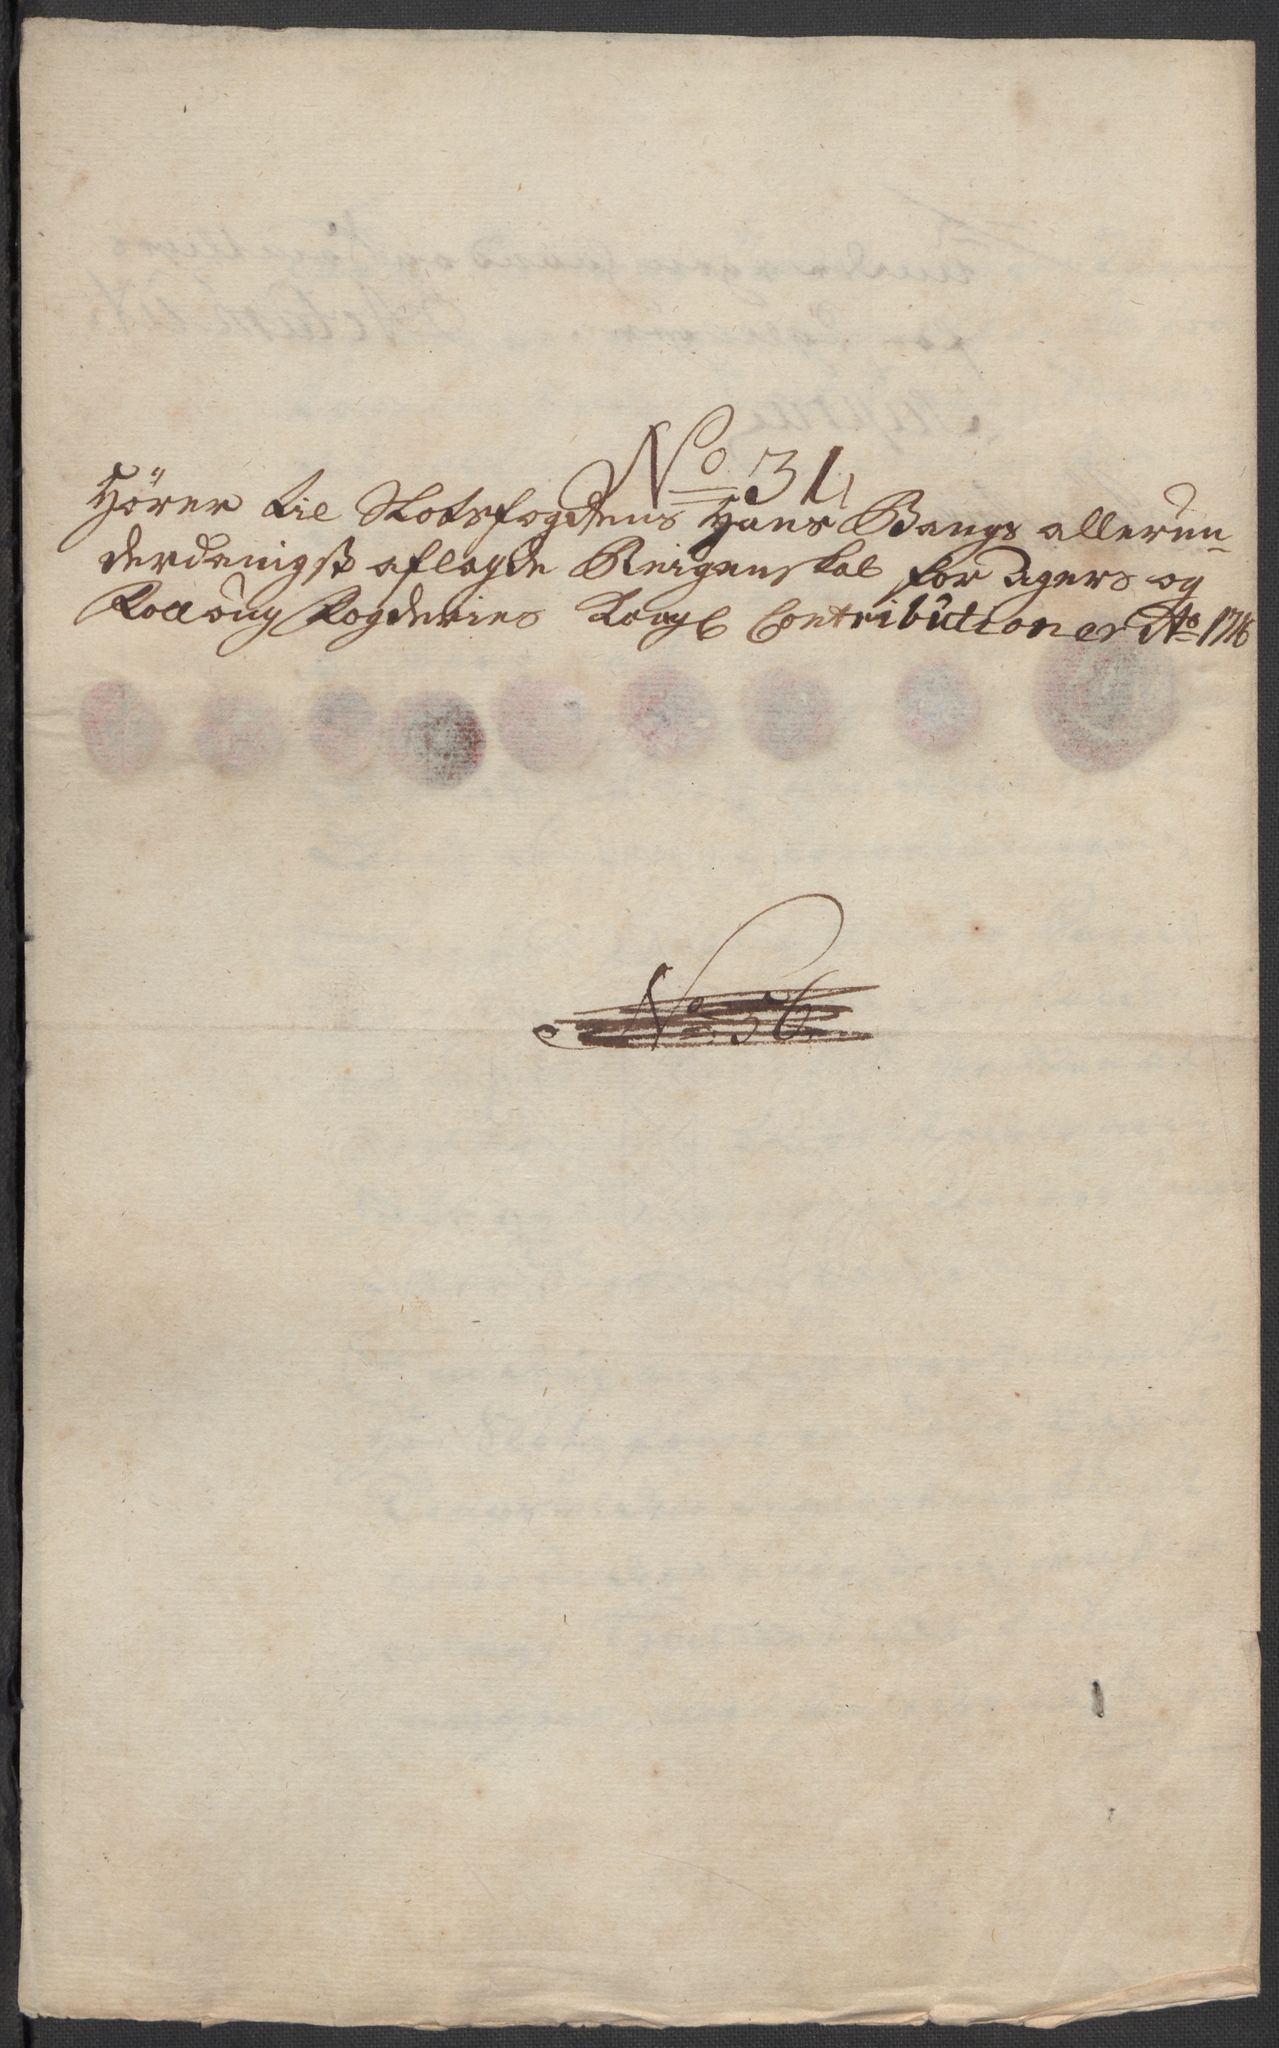 No 31
Hörer til Slotsfogdens Hans Bangs allerun-
derdanigst aflagde Reigenskab for Agers og
Folloug Fogderies Kongl Contributioner Ao 1716
No: 56